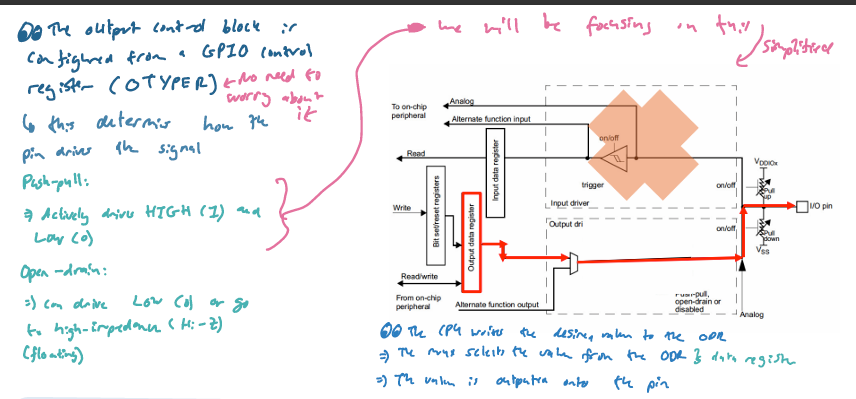 The output control block is
configured from a GPIO control
register (OTYPER) ← No need to
worry about
it
↳ this determins how the
pin drives the signal
Push-pull:
⇒ Actively drive HIGH (1) and
Low (0)
Open-drain:
⇒) can drive Low (0) or go
to high-impedance (Hi-Z)
(floating)
we will be focusing on this
simplified
To on-chip
peripheral
Analog
Alternate function input
Read
Write
Read/write
From on-chip
peripheral
Alternate function output
Bit set/reset registers
Input data register
Output data register
on/off
trigger
Input driver
Output dri
on/off
on/off
VDDIOx
Pull
up
Pull
down
VSS
I/O pin
push-pull,
open-drain or
disabled
Analog
The CPU writes the desired value to the ODR
⇒ The mux selects the value from the ODR } data register
⇒) The value is outputted onto the pin